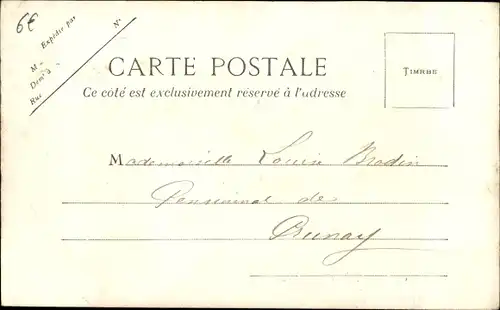 6€
Expédié par
M
Dem^t à
Rue
N°
CARTE POSTALE
Ce côté est exclusivement réservé à l'adresse
TIMBRE
Mademoiselle Louise Bradin
Pensionnat de